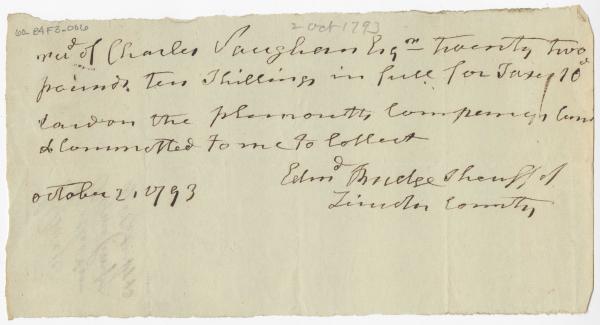 2 Oct 1793
rec'd of Charles Vaughan Esqr twenty two
pounds ten Shillings in full for Taxes
Laid on the plymouth Company's
& Committed to me to Collect
Edmd Bridge Sheriff of
October 2, 1793
Lincoln County